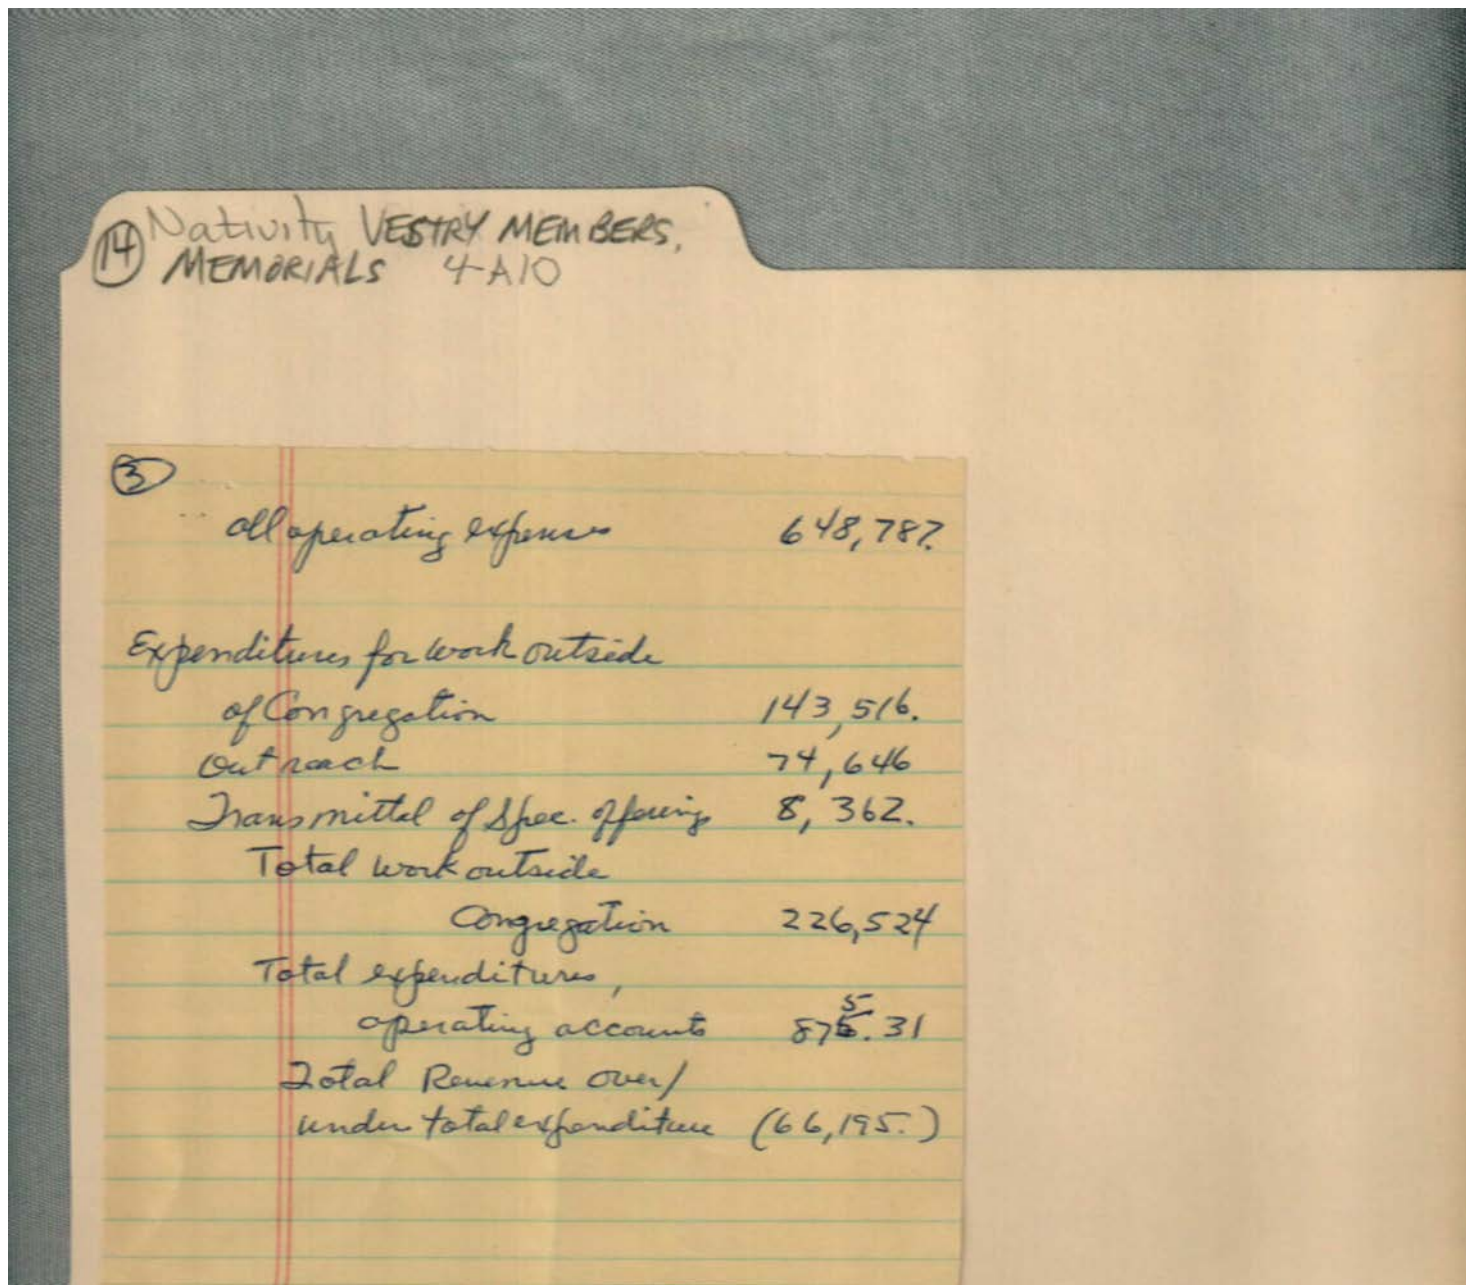 14 Nativity VESTRY MEMBERS,
MEMORIALS 4-A10
3
all operating expenses 648,787.
Expenditures for work outside
of Congregation 143,516.
Outreach 74,646
Transmittal of Spec. offerings 8,362.
Total work outside
Congregation 226,524
Total expenditures,
5
operating accounts 875.31
Total Revenue over/
under total expenditure (66,195.)